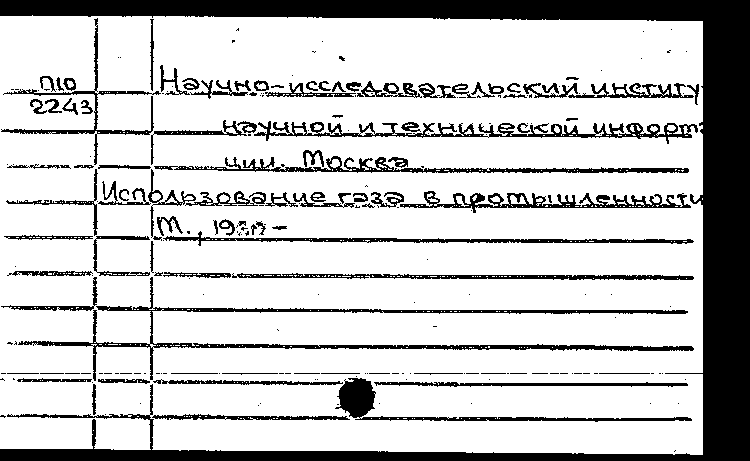 П10
2243
Научно-исследовательский институ
научной и технической инфорт
ции. Москва
Использование газа в промышленности
М.,